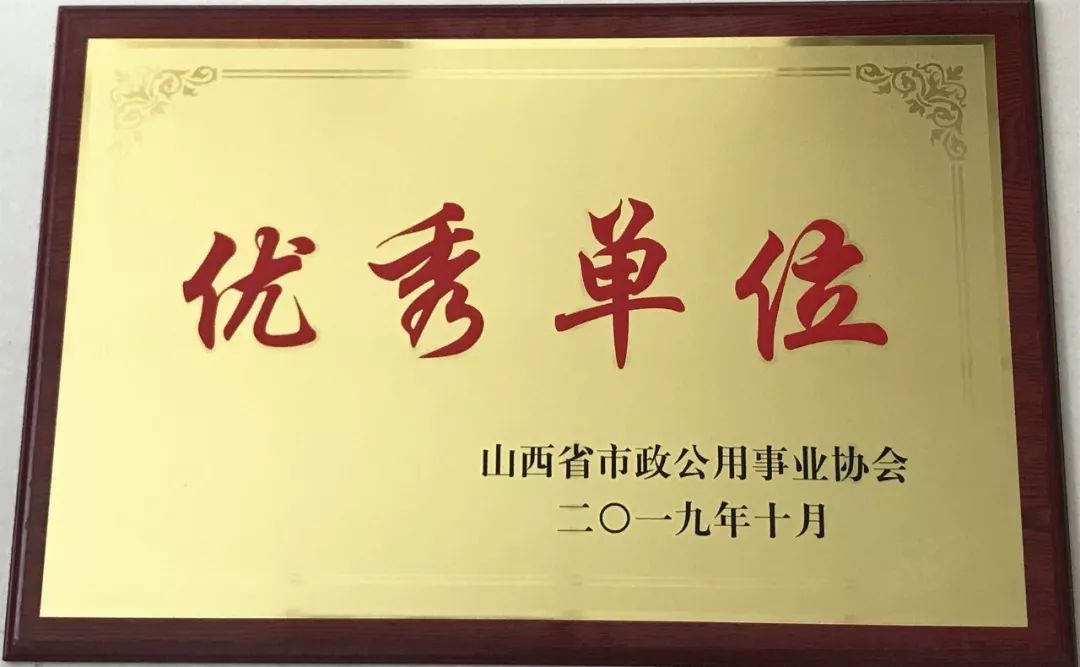 优秀单位
山西省市政公用事业协会
二〇一九年十月